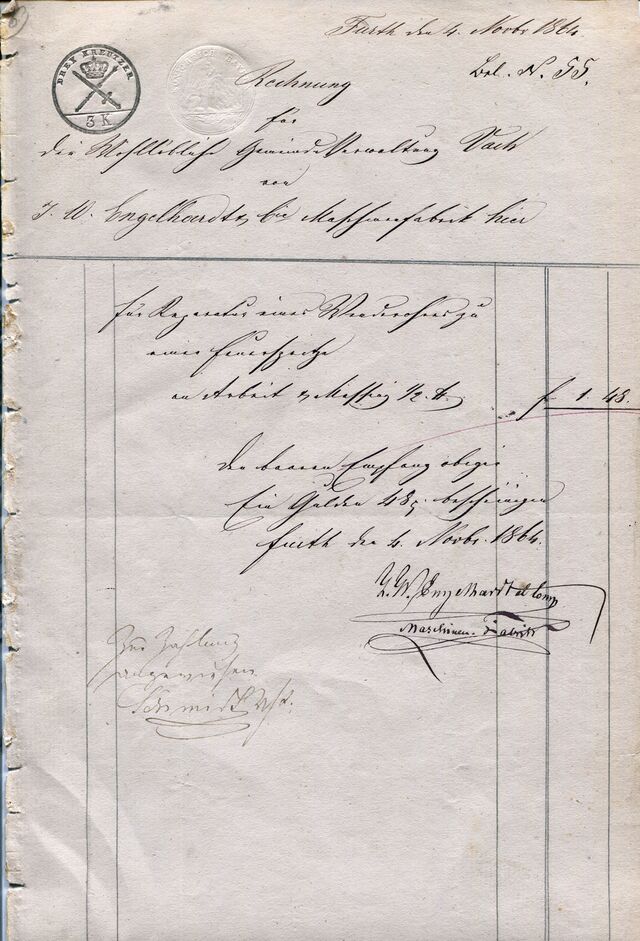 Fürth den 4. Novbr. 1864
Bel. N. 55.
DREY KREUTZER
3 K
Rechnung
für
die Wohllöbliche Gemeinde Verwaltung Vach
von
J. W. Engelhardt & Cie Maschinenfabrik hier
für Reparatur eines Wenderohres zu
einer Feuerspritze
an Arbeit & Messing ½ ℔
f 1. 48.
Den baaren Empfang obiger
Ein Gulden 48 bescheinigen
Fürth den 4. Novbr. 1864.
J. W. Engelhardt & Comp
Maschinen-Fabrik
Zur Zahlung
angewiesen
Schmidt